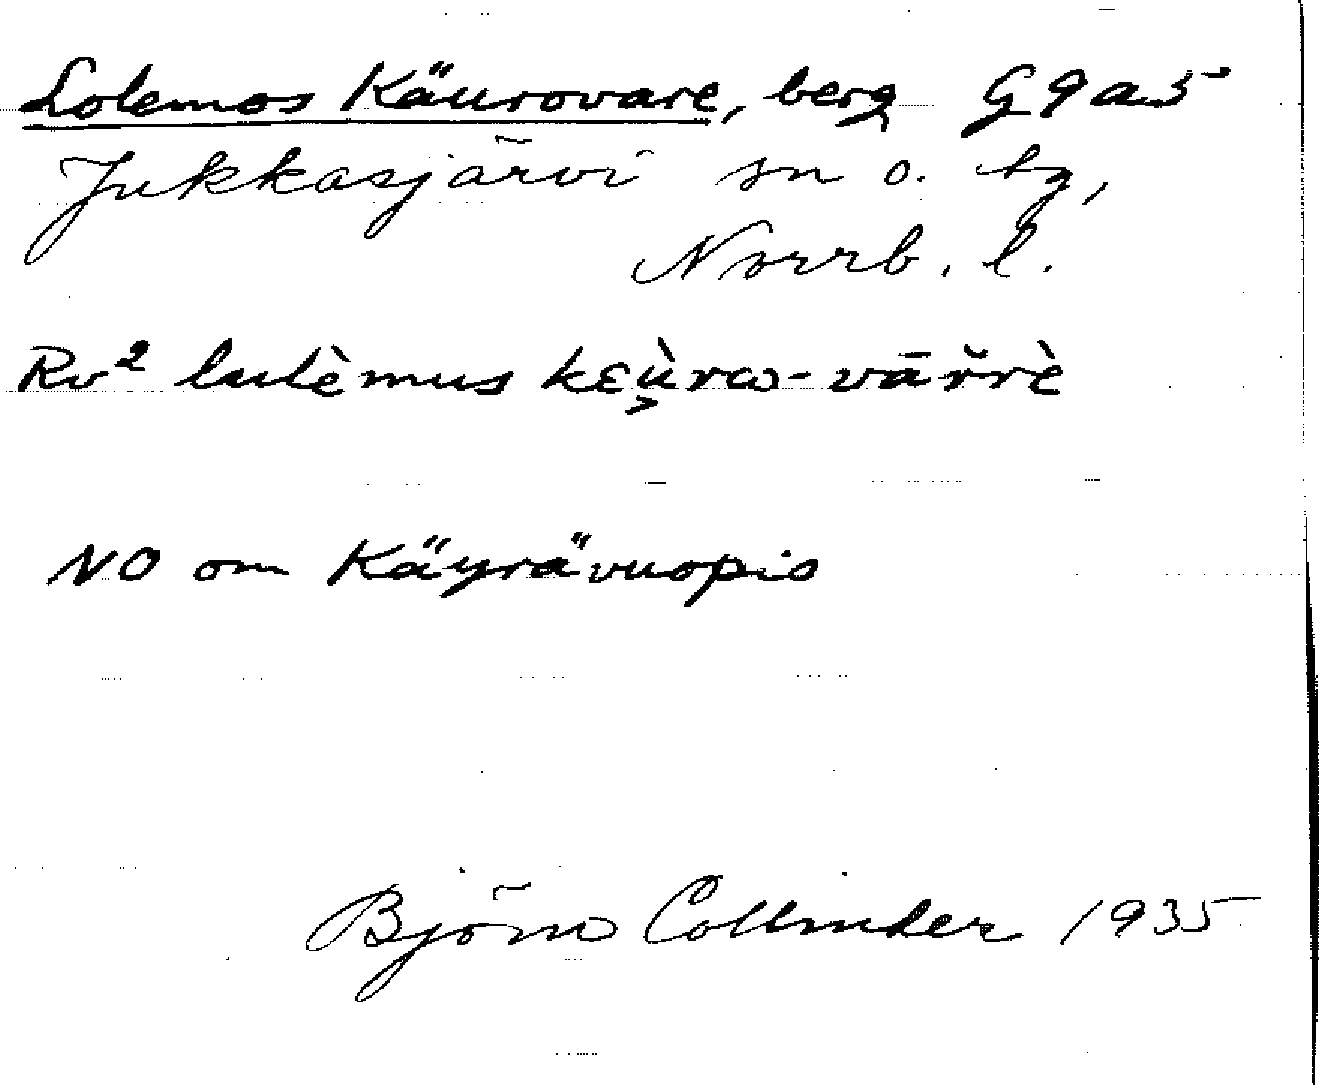 Lolemos Käurovare, berg G9a5
Jukkasjärvi sn o. tg,
Norrb. l.
Rv² lulèmus kɛù̬rω-vār̆rè
NO om Käyrävuopis
Björn Collinder 1935